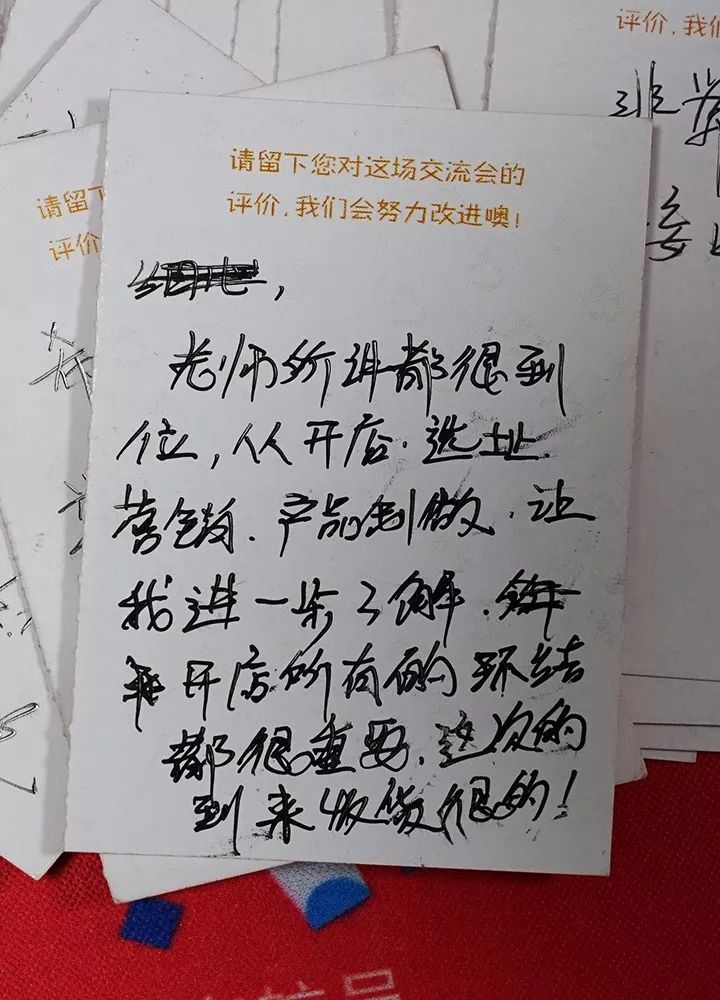 请留下您对这场交流会的
评价,我们会努力改进噢!
老师所讲都很到
位,从开店.选址.
营销.产品制做.让
我进一步了解.
开店所有的环结
都很重要.这次的
到来收货很的!
请留下
评价
评价,我们